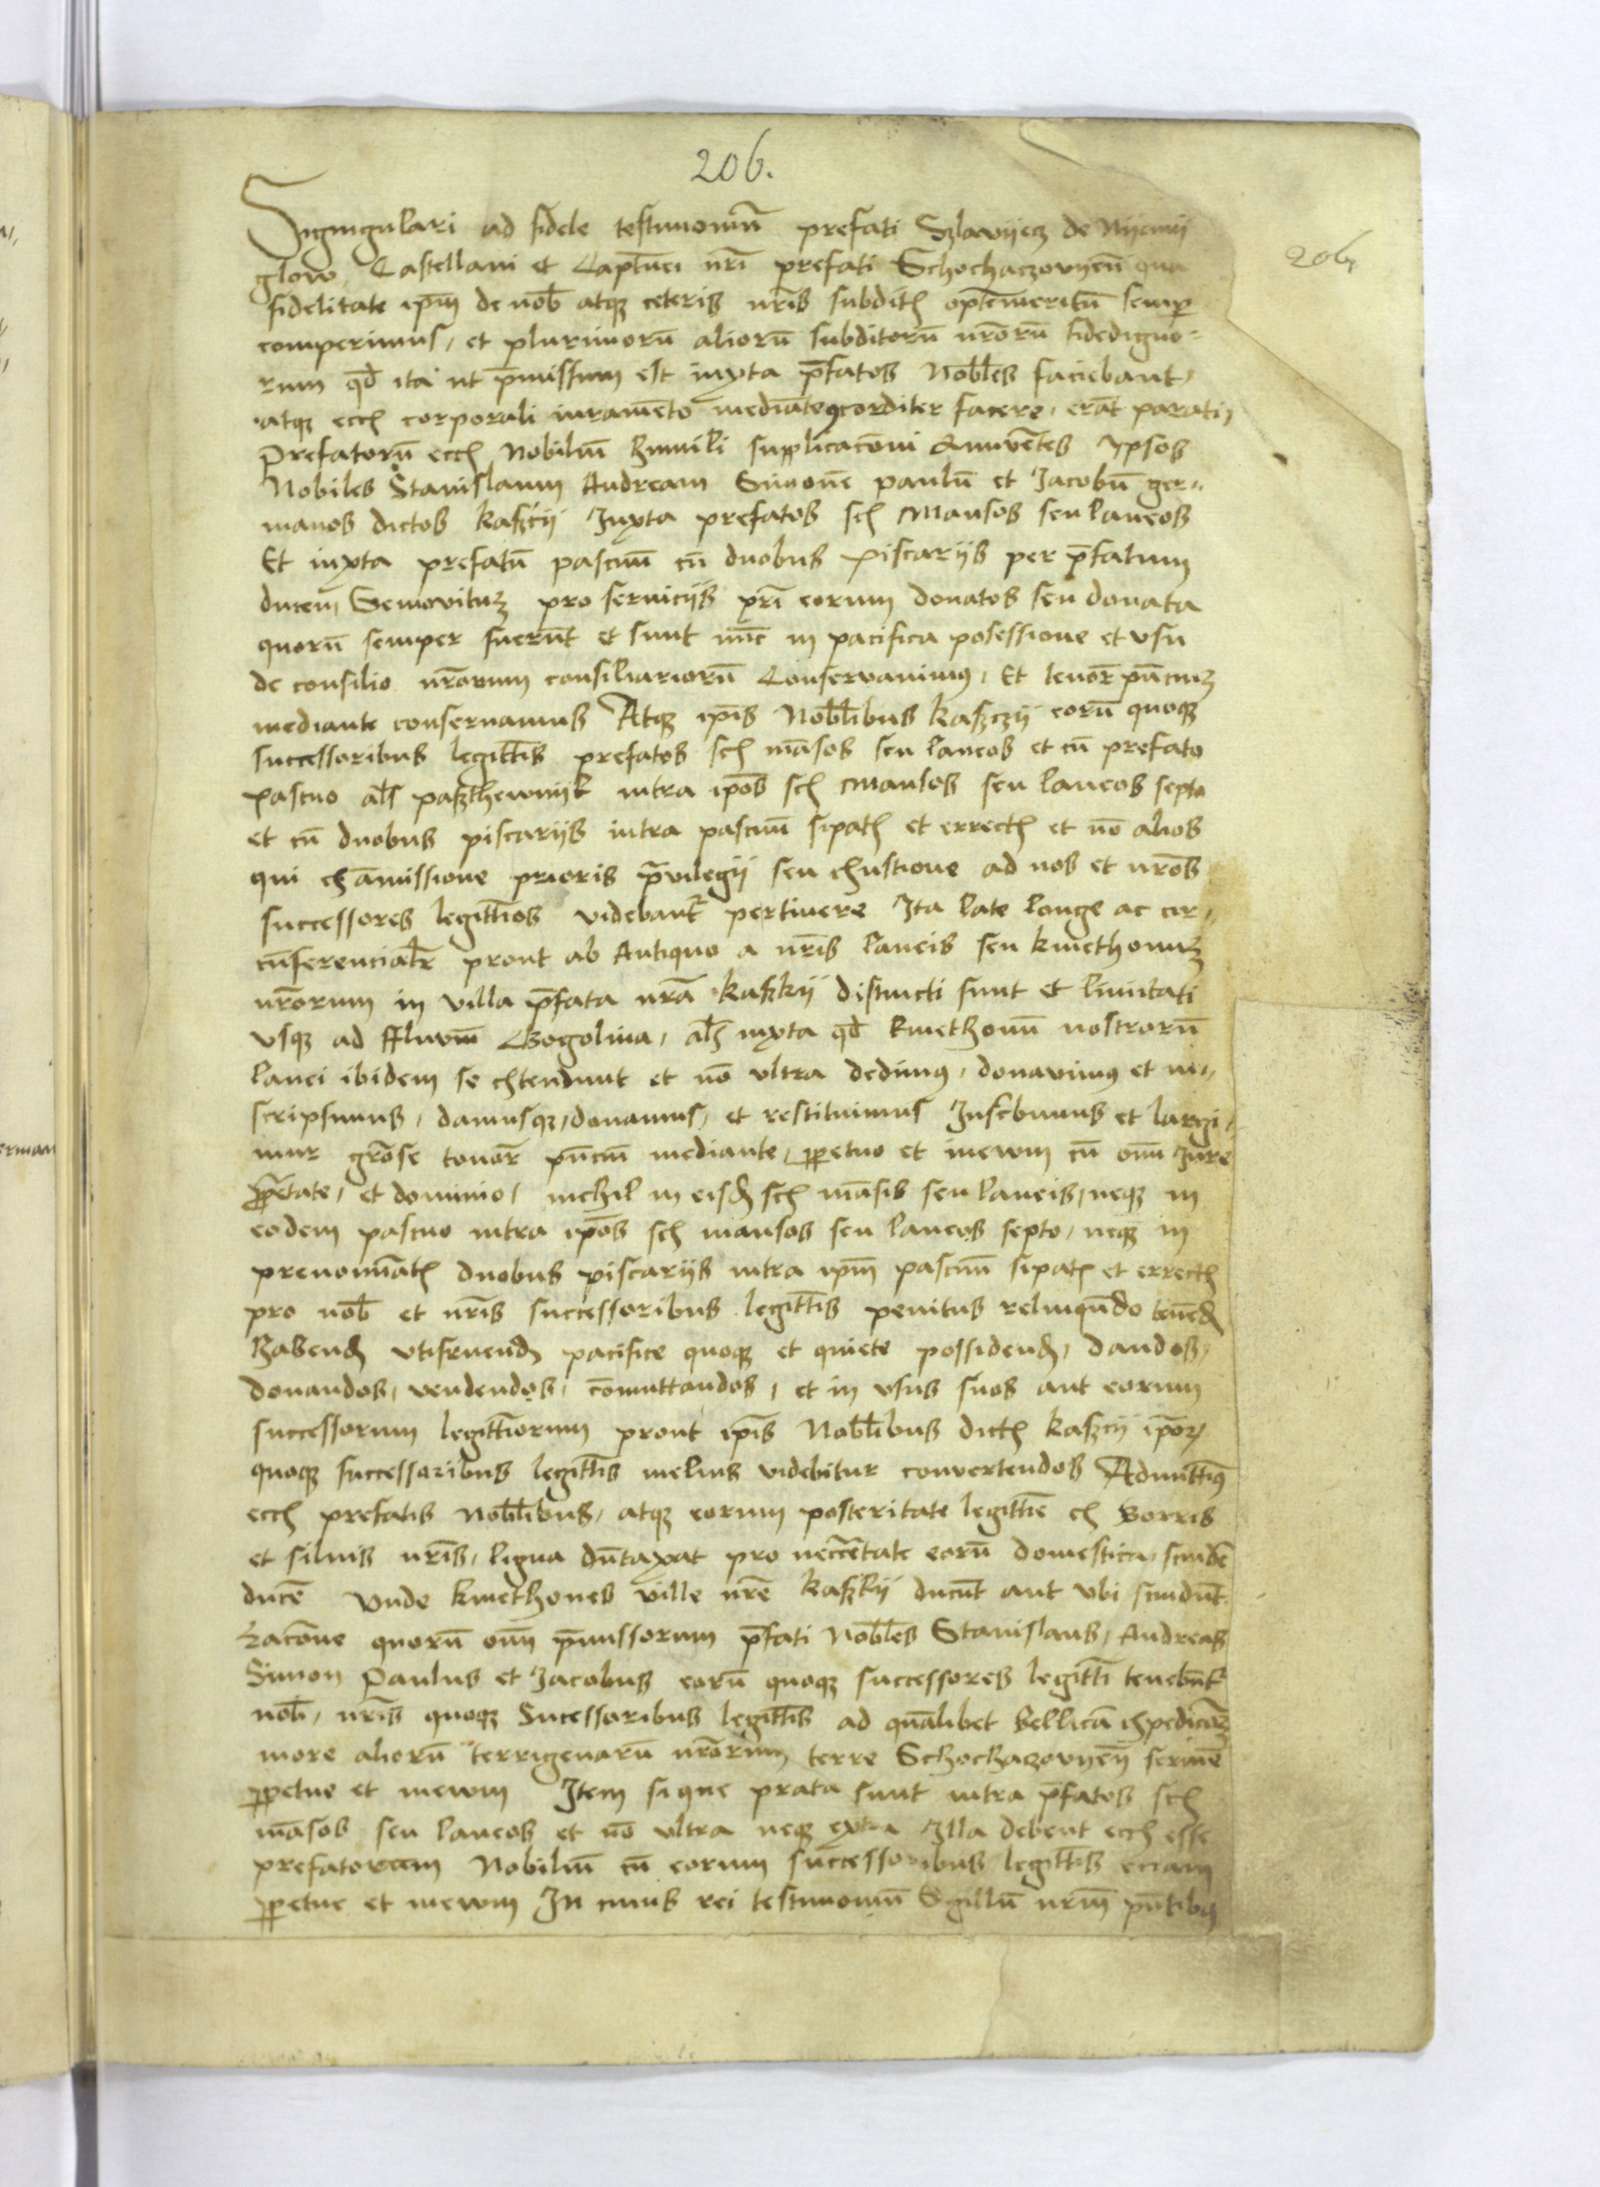 206.
206
Singingulari ad fidele testimoniū prefati Szlawijecz de Nijemij
glow Castellani et Captūei nr̄i prefati Schochaczovijen̄ qua
fidelitate ip̄m de nob̄ atqꝫ ceteris nr̄is subditꝭ optēmeritū semꝑ
comperimus, et plurimorū aliorū subditorū nr̄orū fidedigno-
rum qđ ita ut p̄missum est iuxta p̄fatos Nobl̄es faciebant,
atqꝫ ecc̄ corporali iuramēto mediāte ꝯcorditer facere, erāt parati,
Prefatorū ecc̄ Nobiliū humili supplicac̄oni Annuētes Ipsos
Nobiles Stanislaum Andream Simonē paulū et Jacobū ger-
manos dictos kasczij Juxta prefatos sex Mansos seu laneos
Et iuxta prefatū pascuū cū duobus piscarijs per p̄fatum
ducem Semovitum pro servicijs pr̄i eorum donatos seu donata
quorū semper fuerūt et sunt nūc in pacifica posessione et vsu
de consilio nr̄orum consiliariorū Conservavimꝰ, Et tenor̄ pn̄cium
mediante conservamus Atqꝫ ip̄is Nobl̄ibus kasczij eorū quoqꝫ
successoribus legitt̄is prefatos sex māsos seu laneos et cū prefato
pascuo al̄s paszthewnijk intra ip̄os sex Mansos seu laneos septo
et cū duobus piscarijs intra pascuū sipatꝭ et errectꝭ et nō alios
qui ex āmissione prioris pr̄vilegij seu exustione ad nos et nr̄os
successores legittīos videbant᷑ pertinere Ita late longe ac cir-
cūferencialr̄ prout ab Antiquo a nr̄is laneis seu kmethonum
nr̄orum in villa p̄fata nr̄a kaskij distincti sunt et limitati
vsqꝫ ad ffluviū Gogolina, al̄s iuxta qđ kmethonū nostrorū
lanei ibidem se extendunt et nō vltra dedimꝰ, donavimꝰ et in-
scripsimus, damusqꝫ, donamus, et restituimus Inscr̄bimus et largi-
mur grōse tenor̄ pn̄ciū mediante, ꝑpetuo et inewm cū om̄i Jure
ꝓprietate, et dominio, nichil in eisđ sex māsis seu laneis, neqꝫ in
eodem pascuo intra ip̄os sex mansos seu laneos septo, neqꝫ in
prenomiatꝭ duobus piscarijs intra ip̄m pascuū sipatꝭ et errectꝭ
pro nob̄ et nr̄is successoribus legitt̄is penitus relinquēdo tenēđ
habenđ vtifruenđ pacifice quoqꝫ et quiete possidenđ, dandos,
donandos, vendendos, cōmuttandos, et in vsus suos aut eorum
successorum legittīorum prout ip̄is Nobl̄ibus dictꝭ kasczij ip̄orꝝ
quoqꝫ successoribus legitt̄is melius videbitur convertendos Admittimꝰ
ecc̄ prefatis Nobl̄ibus, atqꝫ eorum posteritate legittīe ex Borris
et siluis nr̄is, ligna dūtaxat pro neccēitate eorū domestica, scindē
ducē Unde kmethones ville nr̄e kaskij ducūt aut vbi scindūt
Rac̄one quorū om̄ p̄missorum p̄fati Nobl̄es Stanislaus, Andreas
Simon Paulus et Jacobus eorū quoqꝫ successores legitt̄i tenebūt᷑
nob̄, nr̄is quoqꝫ Sucessoribus legitt̄is ad quālibet bellicā expedic̄oem
more aliorū terrigenarū nr̄orum terre Schochaczovijen̄ servire
ꝑpetue et inewm Item si que prata sunt intra p̄fatos sex
māsos seu laneos et nō vltra neqꝫ extra Illa debent ecc̄ esse
prefatorum Nobiliū cū eorum successoribus legitt̄is eciam
ꝑpetue et inewm In cuius rei testimoniū Sgillū nr̄m pn̄tibꝰ